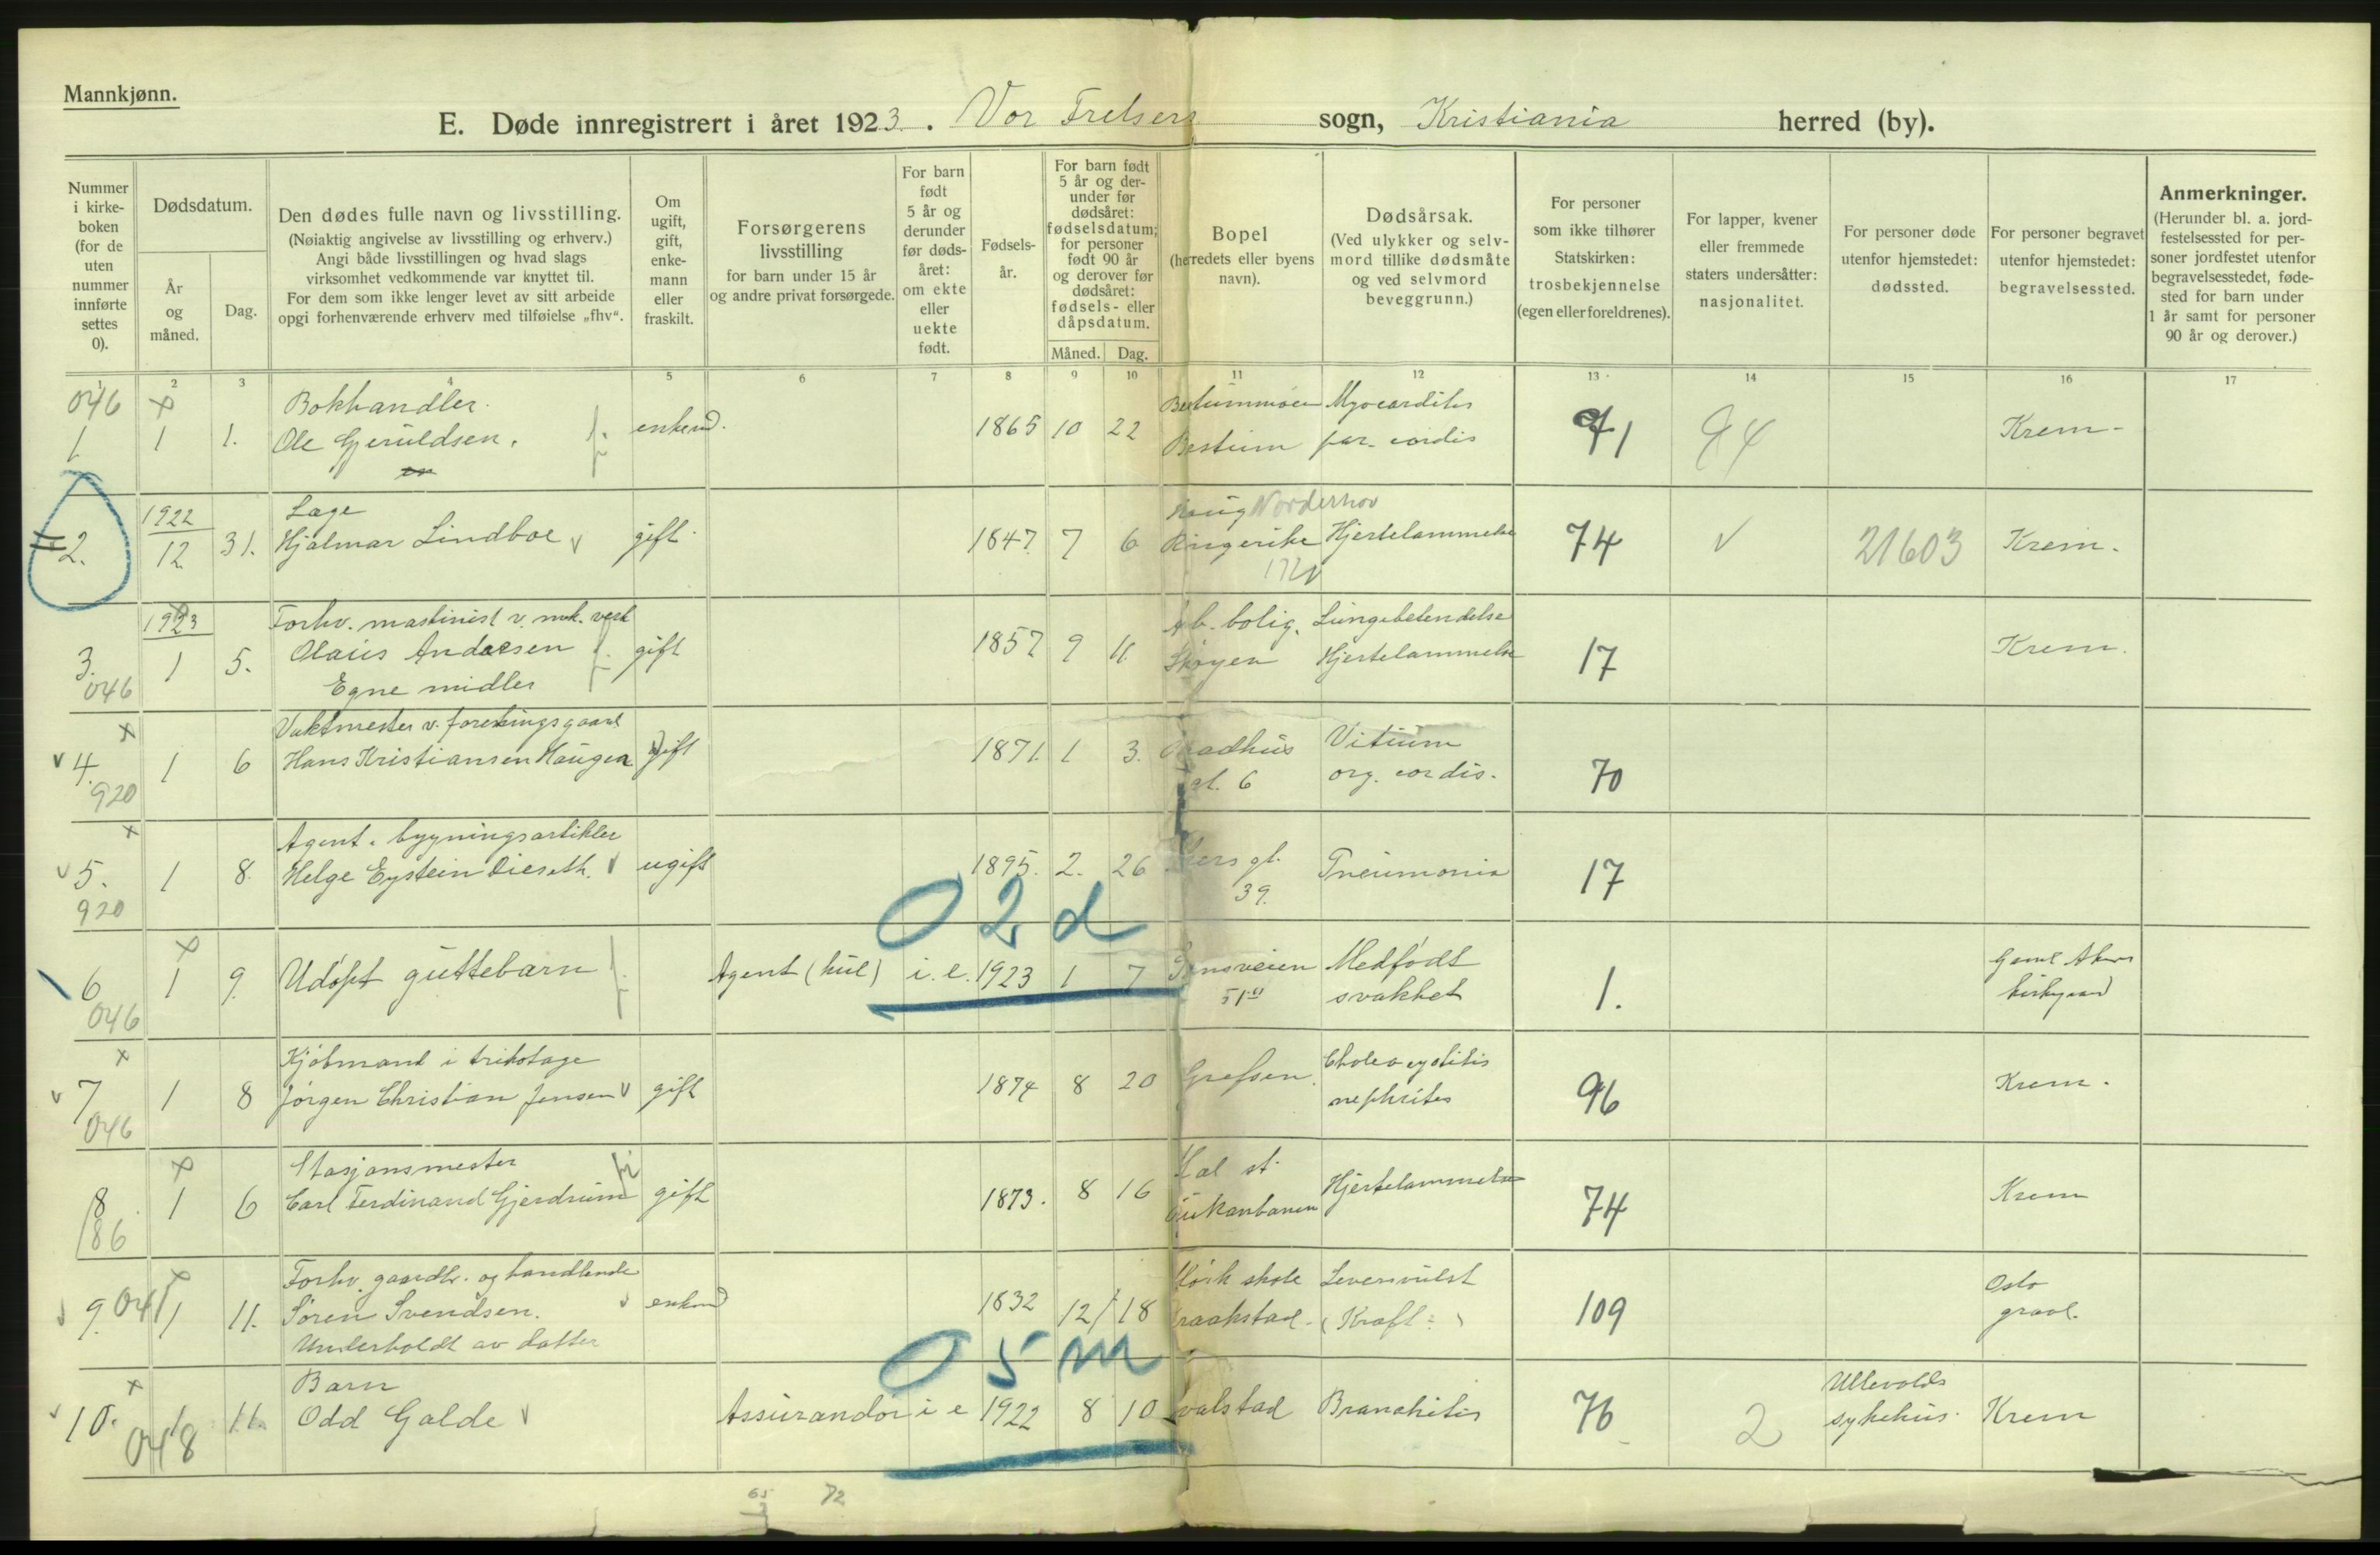 Mannkjønn.
E. Døde innregistrert i året 1923. Vor Frelsers sogn, Kristiania herred (by).
Nummer i kirke-boken (for de uten nummer innførte settes 0).
Dødsdatum.
År og måned.
Dag.
Den dødes fulle navn og livsstilling.
(Nøiaktig angivelse av livsstilling og erhverv.)
Angi både livsstillingen og hvad slags
virksomhet vedkommende var knyttet til.
For dem som ikke lenger levet av sitt arbeide
opgi forhenværende erhverv med tilføielse „fhv“.
Om ugift, gift, enke-mann eller fraskilt.
Forsørgerens livsstilling
for barn under 15 år
og andre privat forsørgede.
For barn født 5 år og derunder før døds-året: om ekte eller uekte født.
Fødsels-år.
For barn født 5 år og der-under før dødsåret: fødselsdatum; for personer født 90 år og derover før dødsåret: fødsels- eller dåpsdatum.
Måned. Dag.
Bopel
(herredets eller byens navn).
Dødsårsak.
(Ved ulykker og selv-mord tillike dødsmåte og ved selvmord beveggrunn.)
For personer som ikke tilhører Statskirken: trosbekjennelse (egen eller foreldrenes).
For lapper, kvener eller fremmede staters undersåtter: nasjonalitet.
For personer døde utenfor hjemstedet: dødssted.
For personer begravet utenfor hjemstedet: begravelsessted.
Anmerkninger.
(Herunder bl. a. jord-festelsessted for per-soner jordfestet utenfor begravelsesstedet, føde-sted for barn under 1 år samt for personer 90 år og derover.)
1 2 3 4 5 6 7 8 9 10 11 12 13 14 15 16 17
046 x Bokhandler.
1 1 1. Ole Gjeruldsen. enkem. 1865 10 22 Bestum Myocarditis par. cordis 91 94 Krem-
1922 Læge Haug Norderhov
2. 12 31. Hjalmar Lindboe v gift 1847 7 6 Ringerike Hjertelammelse 74 v 21603 Krem.
1923 Forhv. maskinist v. mek. verk Arb. bolig. Lungebetendelse
3. 1 5. Olaus Andersen gift 1857 9 11 Skøyen Hjertelammelse 17 Krem.
046 Egne midler
x Vaktmester v. foreningsgaard
v 4. 1 6 Hans Kristiansen Haugen gift 1871. 1 3. Raadhus gt. 6 Vitium org. cordis. 70
920
x Agent. bygningsartikler
v 5. 1 8 Helge Eystein Dieseth. v ugift 1895. 2. 26 Akers gt. 39. Pneumonia 17
920
02 d
x
6 1 9. Udøpt guttebarn Agent (kul) i. e. 1923 1 7 51 Medfødt svakhet 1. Gaml Akers kirkegaard
046
x Kjøbmand i trikotage
v 7 1 8 Jørgen Christian Jensen v gift 1874 8 20 Grefsen. Cholecystitis nephrites 96 Krem.
046
x Stasjonsmester
8 1 6 Carl Ferdinand Gjerdrum gift 1873. 8 16 st. Hjertelammelse 74 Krem
186
x Forhv. gaardbr. og handlende
9. 041 1 11. Søren Svendsen. v enkem 1832 12/18 skole Kraakstad. Leversvulst (Kræft) 109 Oslo gravl.
Underholdt av datter
05 m
x Barn
v 10. 1 11. Odd Galde v Assurandør i e 1922 8 10 Hvalstad Bronchitis 76 2 Ullevolds sykehus. Krem
048
65 72